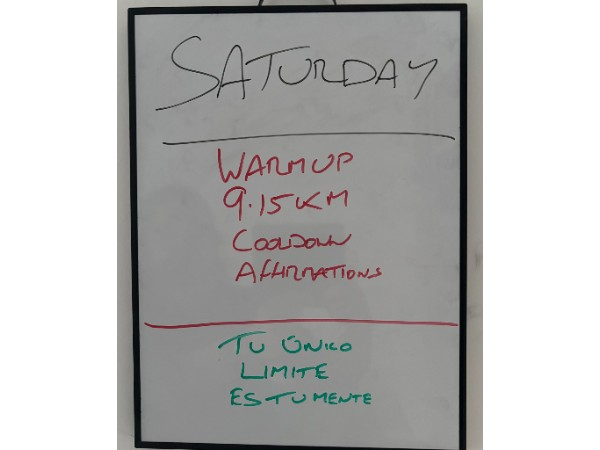 SATURDAY
WARMUP
9.15KM
COOLDOWN
AFFIRMATIONS
TU ÚNICO
LIMITE
ES TU MENTE